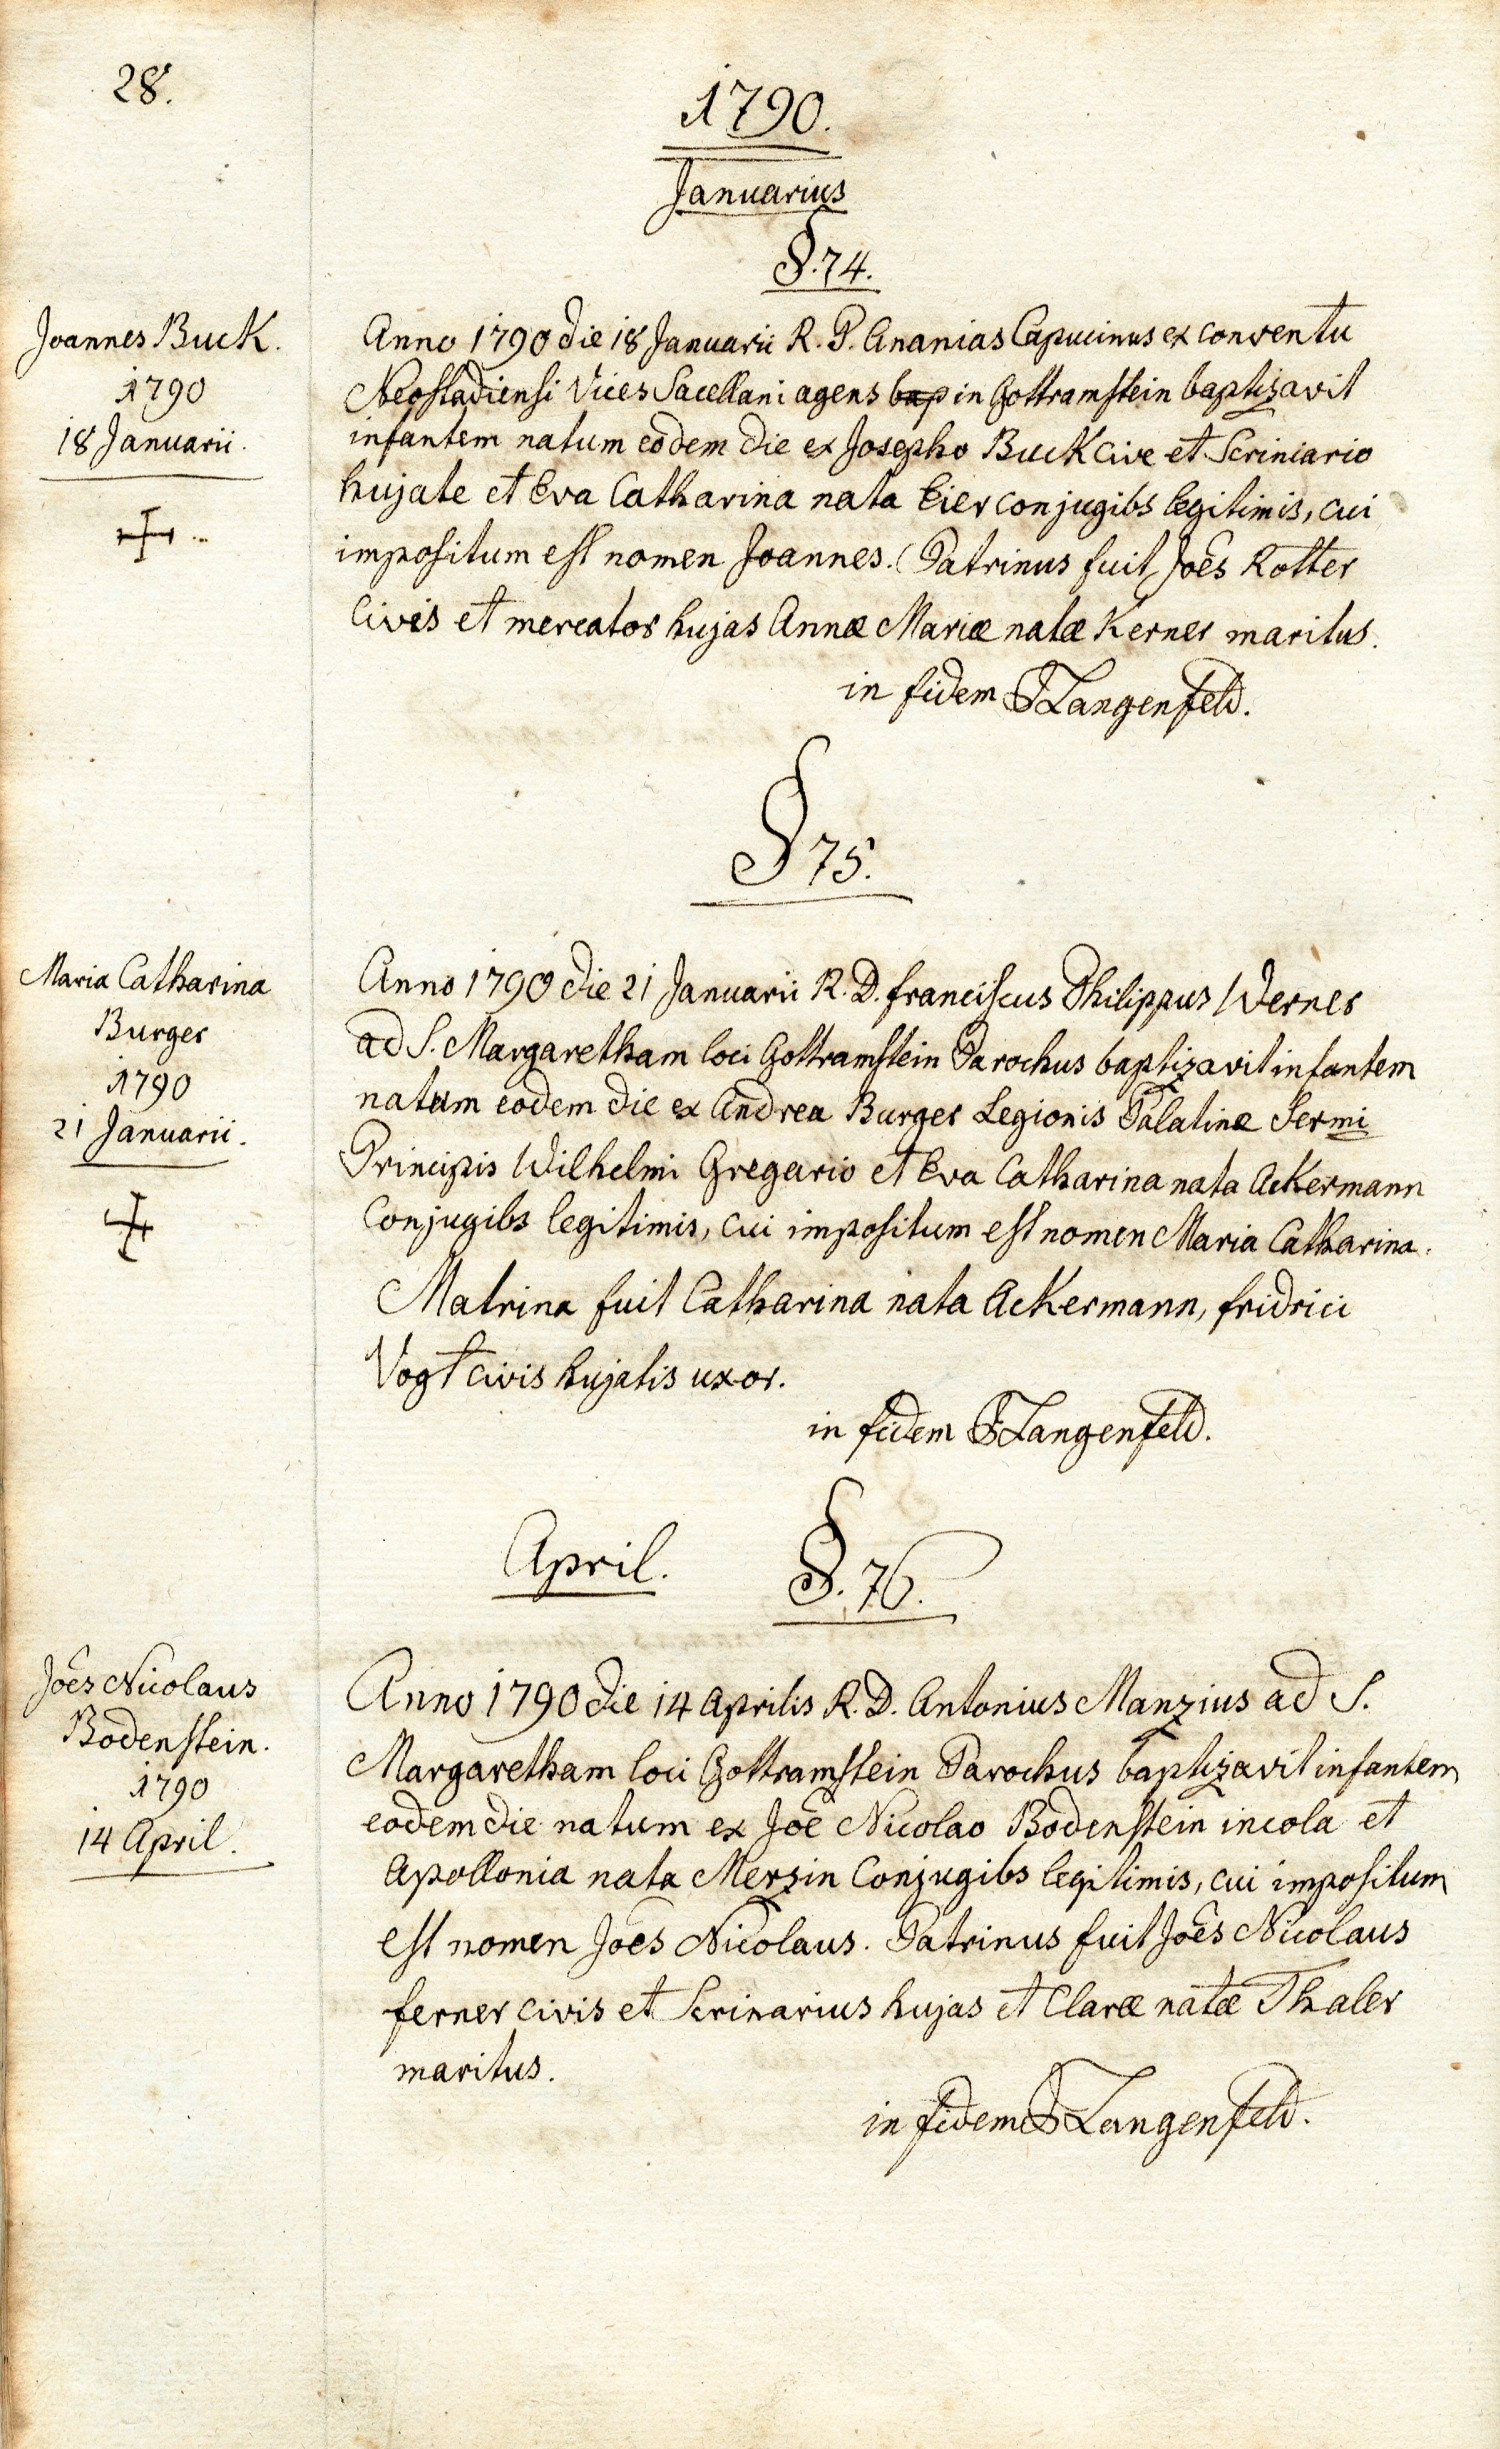 28.
1790.
Januarius
§.74.
Joannes Buck.
1790
18 Januarii.
Anno 1790 die 18 Januarii R. P. Ananias Capucinus ex conventu
Neostadiensi Vices Sacellani agens bap in Gottramstein baptizavit
infantem natum eodem die ex Josepho Buck cive et Scriniario
hujate et Eva Catharina nata Eier conjugibs legitimis, cui
impositum est nomen Joannes. Patrinus fuit Joēs Rotter
Civis et mercator hujas Annæ Mariæ natæ Kerner maritus.
in fidem F Langenfeld.
§ 75.
Maria Catharina
Burger
1790
21 Januarii.
Anno 1790 die 21 Januarii R. D. franciscus Philippus Werner
ad S. Margaretham loci Gottramstein Parochus baptizavit infantem
natam eodem die ex Andrea Burger Legionis Palatinæ Sermi
Principis Wilhelmi Gregario et Eva Catharina nata Ackermann
Conjugibs legitimis, cui impositum est nomen Maria Catharina.
Matrina fuit Catharina nata Ackermann, fridrici
Vogt civis hujatis uxor.
in fidem F Langenfeld.
April. §. 76.
Joēs Nicolaus
Bodenstein.
1790
14 April.
Anno 1790 die 14 Aprilis R. D. Antonius Manzius ad S.
Margaretham loci Gottramstein Parochus baptizavit infantem
eodem die natum ex Joē Nicolao Bodenstein incola et
Apollonia nata Merzin Conjugibs legitimis, cui impositum
est nomen Joēs Nicolaus. Patrinus fuit Joēs Nicolaus
ferner civis et Scrinarius hujas et Claræ natæ Thaler
maritus.
in fidem F Langenfeld.